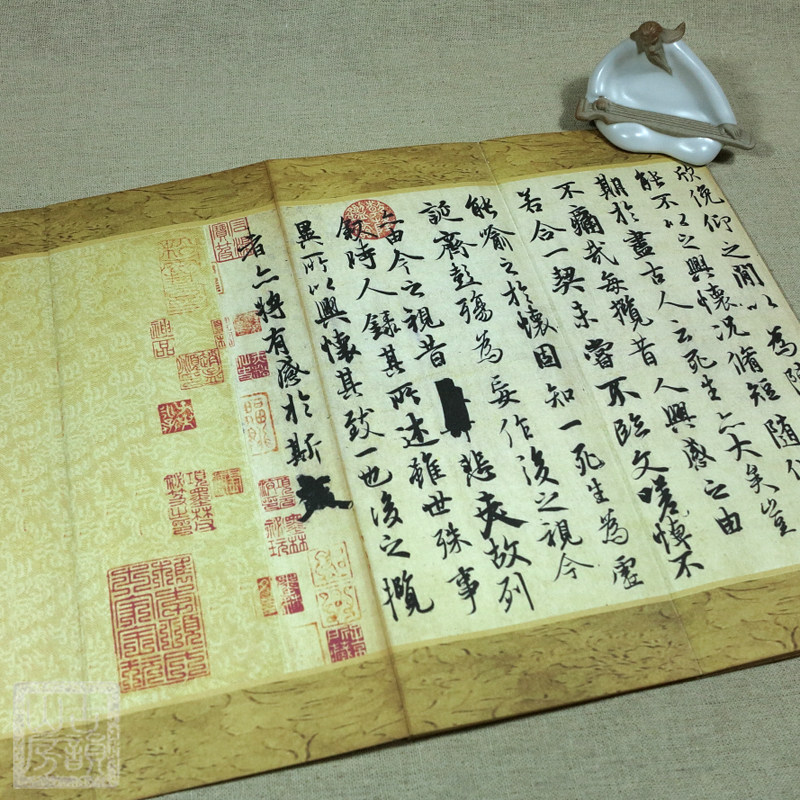 欣俛仰之閒以為陳
能不以之興懷況脩短隨化
期於盡古人云死生亦大矣豈
不痛哉每攬昔人興感之由
若合一契未嘗不臨文嗟悼不
能喻之於懷固知一死生為虛
誕齊彭殤為妄作後之視今
亦由今之視昔悲夫故列
敘時人錄其所述雖世殊事
異所以興懷其致一也後之攬
者亦將有感於斯文
神品